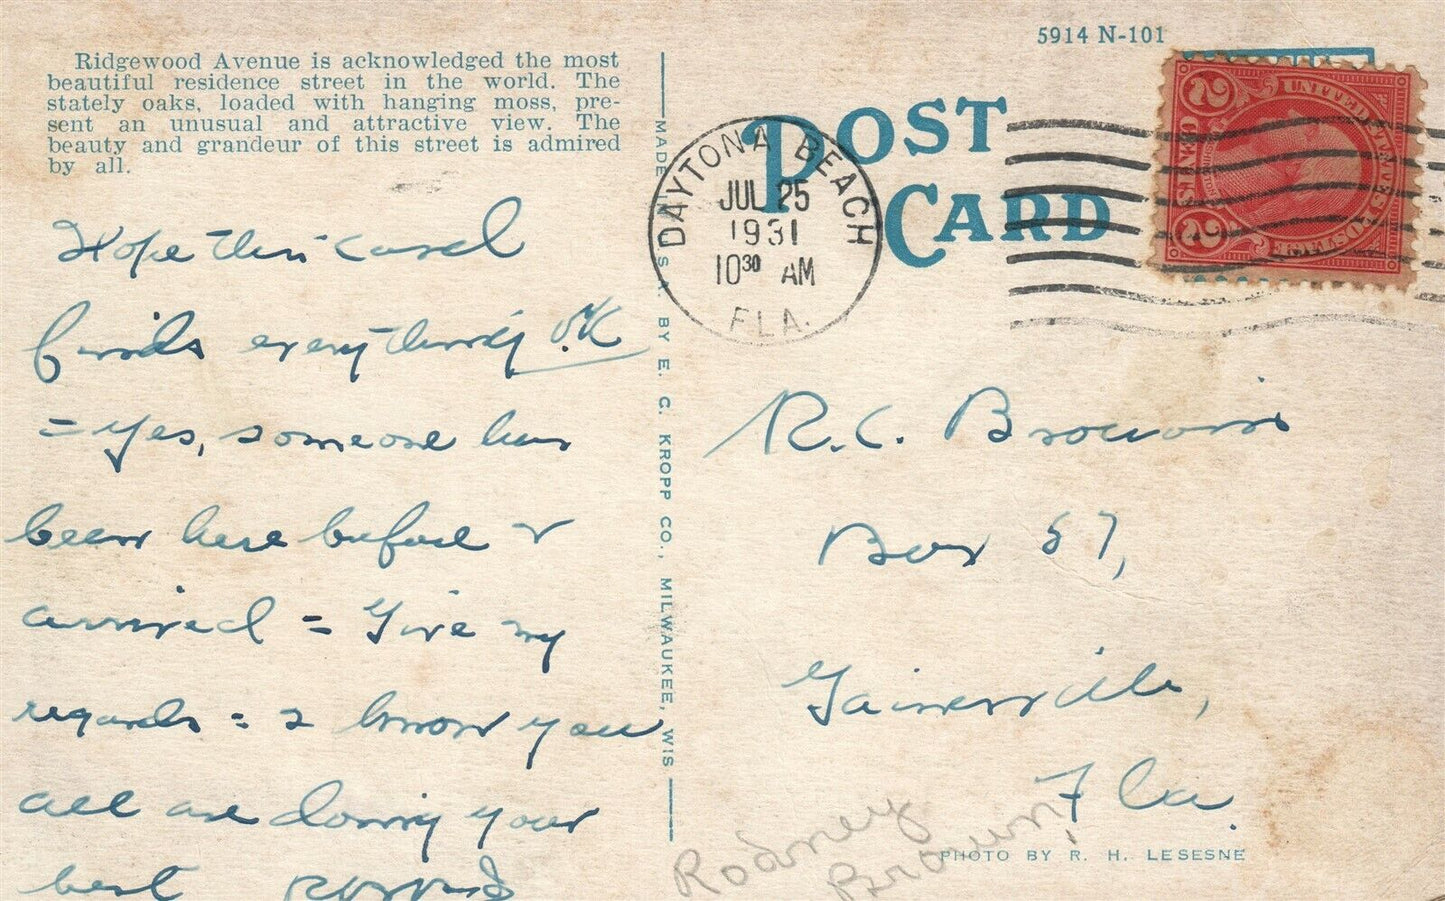 5914 N-101
Ridgewood Avenue is acknowledged the most
beautiful residence street in the world. The
stately oaks, loaded with hanging moss, pre-
sent an unusual and attractive view. The
beauty and grandeur of this street is admired
by all.
POST
CARD
DAYTONA BEACH
JUL 25
1931
10 30 AM
FLA.
2 2
POSTAGE
MADE IN U. S. A. BY E. C. KROPP CO., MILWAUKEE, WIS
Hope this card
finds everything O.K
= Yes, someone has
been here before &
arrived = Give my
regards = I know you
all are doing your
best
R. C.
Box 57,
Gainesville,
Fla.
Rodney
Brown
PHOTO BY R. H. LESESNE